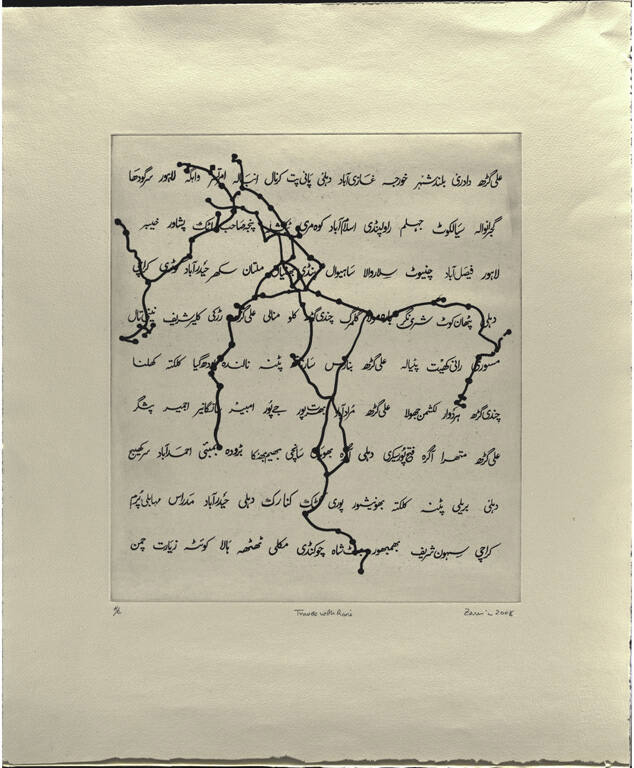 علی گڑھ دادری بلند شہر خورجہ غازی آباد دہلی پانی پت کرنال انبالہ امرتسر واہگہ لاہور سرگودھا
گجرانوالہ سیالکوٹ جہلم راولپنڈی اسلام آباد کوہ مری پنجہ صاحب اٹک پشاور خیبر
لاہور فیصل آباد چنیوٹ سلاروالا ساہیوال ملتان سکھر حیدرآباد کوٹری کراچی
دہلی پٹھان کوٹ شری نگر گلمرگ چندی گڑھ کلو منالی علی گڑھ رڑکی کلیر شریف نینی تال
مسوری رانی کھیت پٹیالہ علی گڑھ بنارس سارناتھ پٹنہ نالندہ بودھ گیا کلکتہ کھلنا
چندی گڑھ ہردوار لکشمن جھولا علی گڑھ مرادآباد بھرت پور جے پور امبیر سانگانیر اجمیر پشکر
علی گڑھ متھرا آگرہ فتح پور سیکری دہلی آگرہ بھوپال سانچی بھیم بھٹکا بڑودہ بمبئی احمدآباد سرکھیج
دہلی بریلی پٹنہ کلکتہ بھونیشور پوری کٹک کنارک دہلی حیدرآباد مدراس مہابلی پُرم
کراچی سیہون شریف بھمبھور شاہ چوکنڈی مکلی ٹھٹھہ ہالا کوئٹہ زیارت چمن
Travels with Rani
Zarina 2008